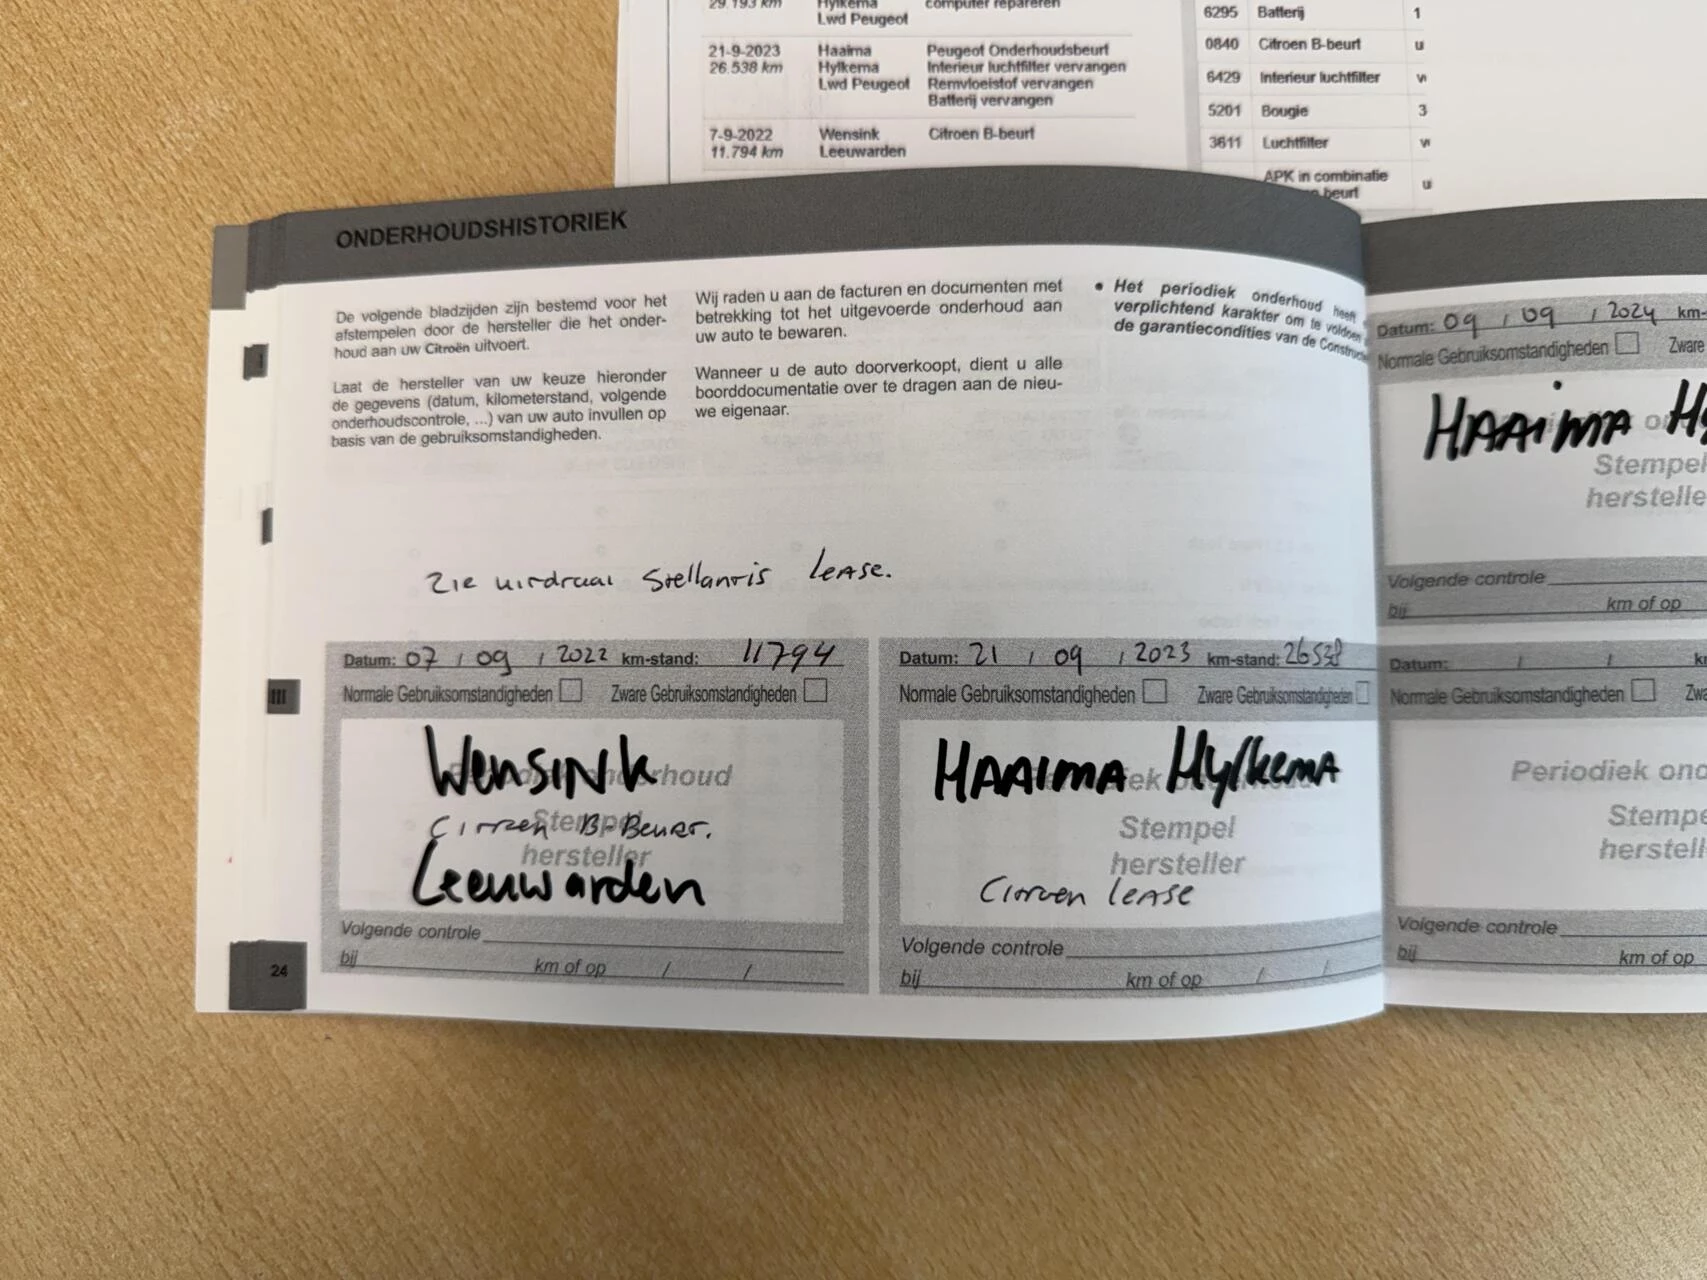 29.193 km Hylkema computer repareren
Lwd Peugeot
21-9-2023 Haaima Peugeot Onderhoudsbeurt
26.538 km Hylkema Interieur luchtfilter vervangen
Lwd Peugeot Remvloeistof vervangen
Batterij vervangen
7-9-2022 Wensink Citroen B-beurt
11.794 km Leeuwarden
6295 Batterij 1
0840 Citroen B-beurt u
6429 Interieur luchtfilter
5201 Bougie 3
3611 Luchtfilter
APK in combinatie u
beurt
ONDERHOUDSHISTORIEK
De volgende bladzijden zijn bestemd voor het
afstempelen door de hersteller die het onder-
houd aan uw Citroën uitvoert.
Laat de hersteller van uw keuze hieronder
de gegevens (datum, kilometerstand, volgende
onderhoudscontrole, ...) van uw auto invullen op
basis van de gebruiksomstandigheden.
Wij raden u aan de facturen en documenten met
betrekking tot het uitgevoerde onderhoud aan
uw auto te bewaren.
Wanneer u de auto doorverkoopt, dient u alle
boorddocumentatie over te dragen aan de nieu-
we eigenaar.
• Het periodiek onderhoud heeft
verplichtend karakter om te voldoen
de garantiecondities van de Construct
Zie uitdraai Stellantis Lease.
Datum: 07 / 09 / 2022 km-stand: 11794
Normale Gebruiksomstandigheden Zware Gebruiksomstandigheden
Periodiek onderhoud
Stempel
hersteller
Wensink
Citroen B-Beurt.
Leeuwarden
Volgende controle
bij km of op / /
24
Datum: 21 / 09 / 2023 km-stand: 26538
Normale Gebruiksomstandigheden Zware Gebruiksomstandigheden
HAAIMA Hylkema
Stempel
hersteller
Citroen Lease
Volgende controle
bij km of op / /
Datum: 09 / 09 / 2024 km-
Normale Gebruiksomstandigheden Zware
HAAIMA Hy
Stempel
herstelle
Volgende controle
bij km of op
Datum: / /
Normale Gebruiksomstandigheden Zwa
Periodiek ond
Stempe
herstell
Volgende controle
bij km of op